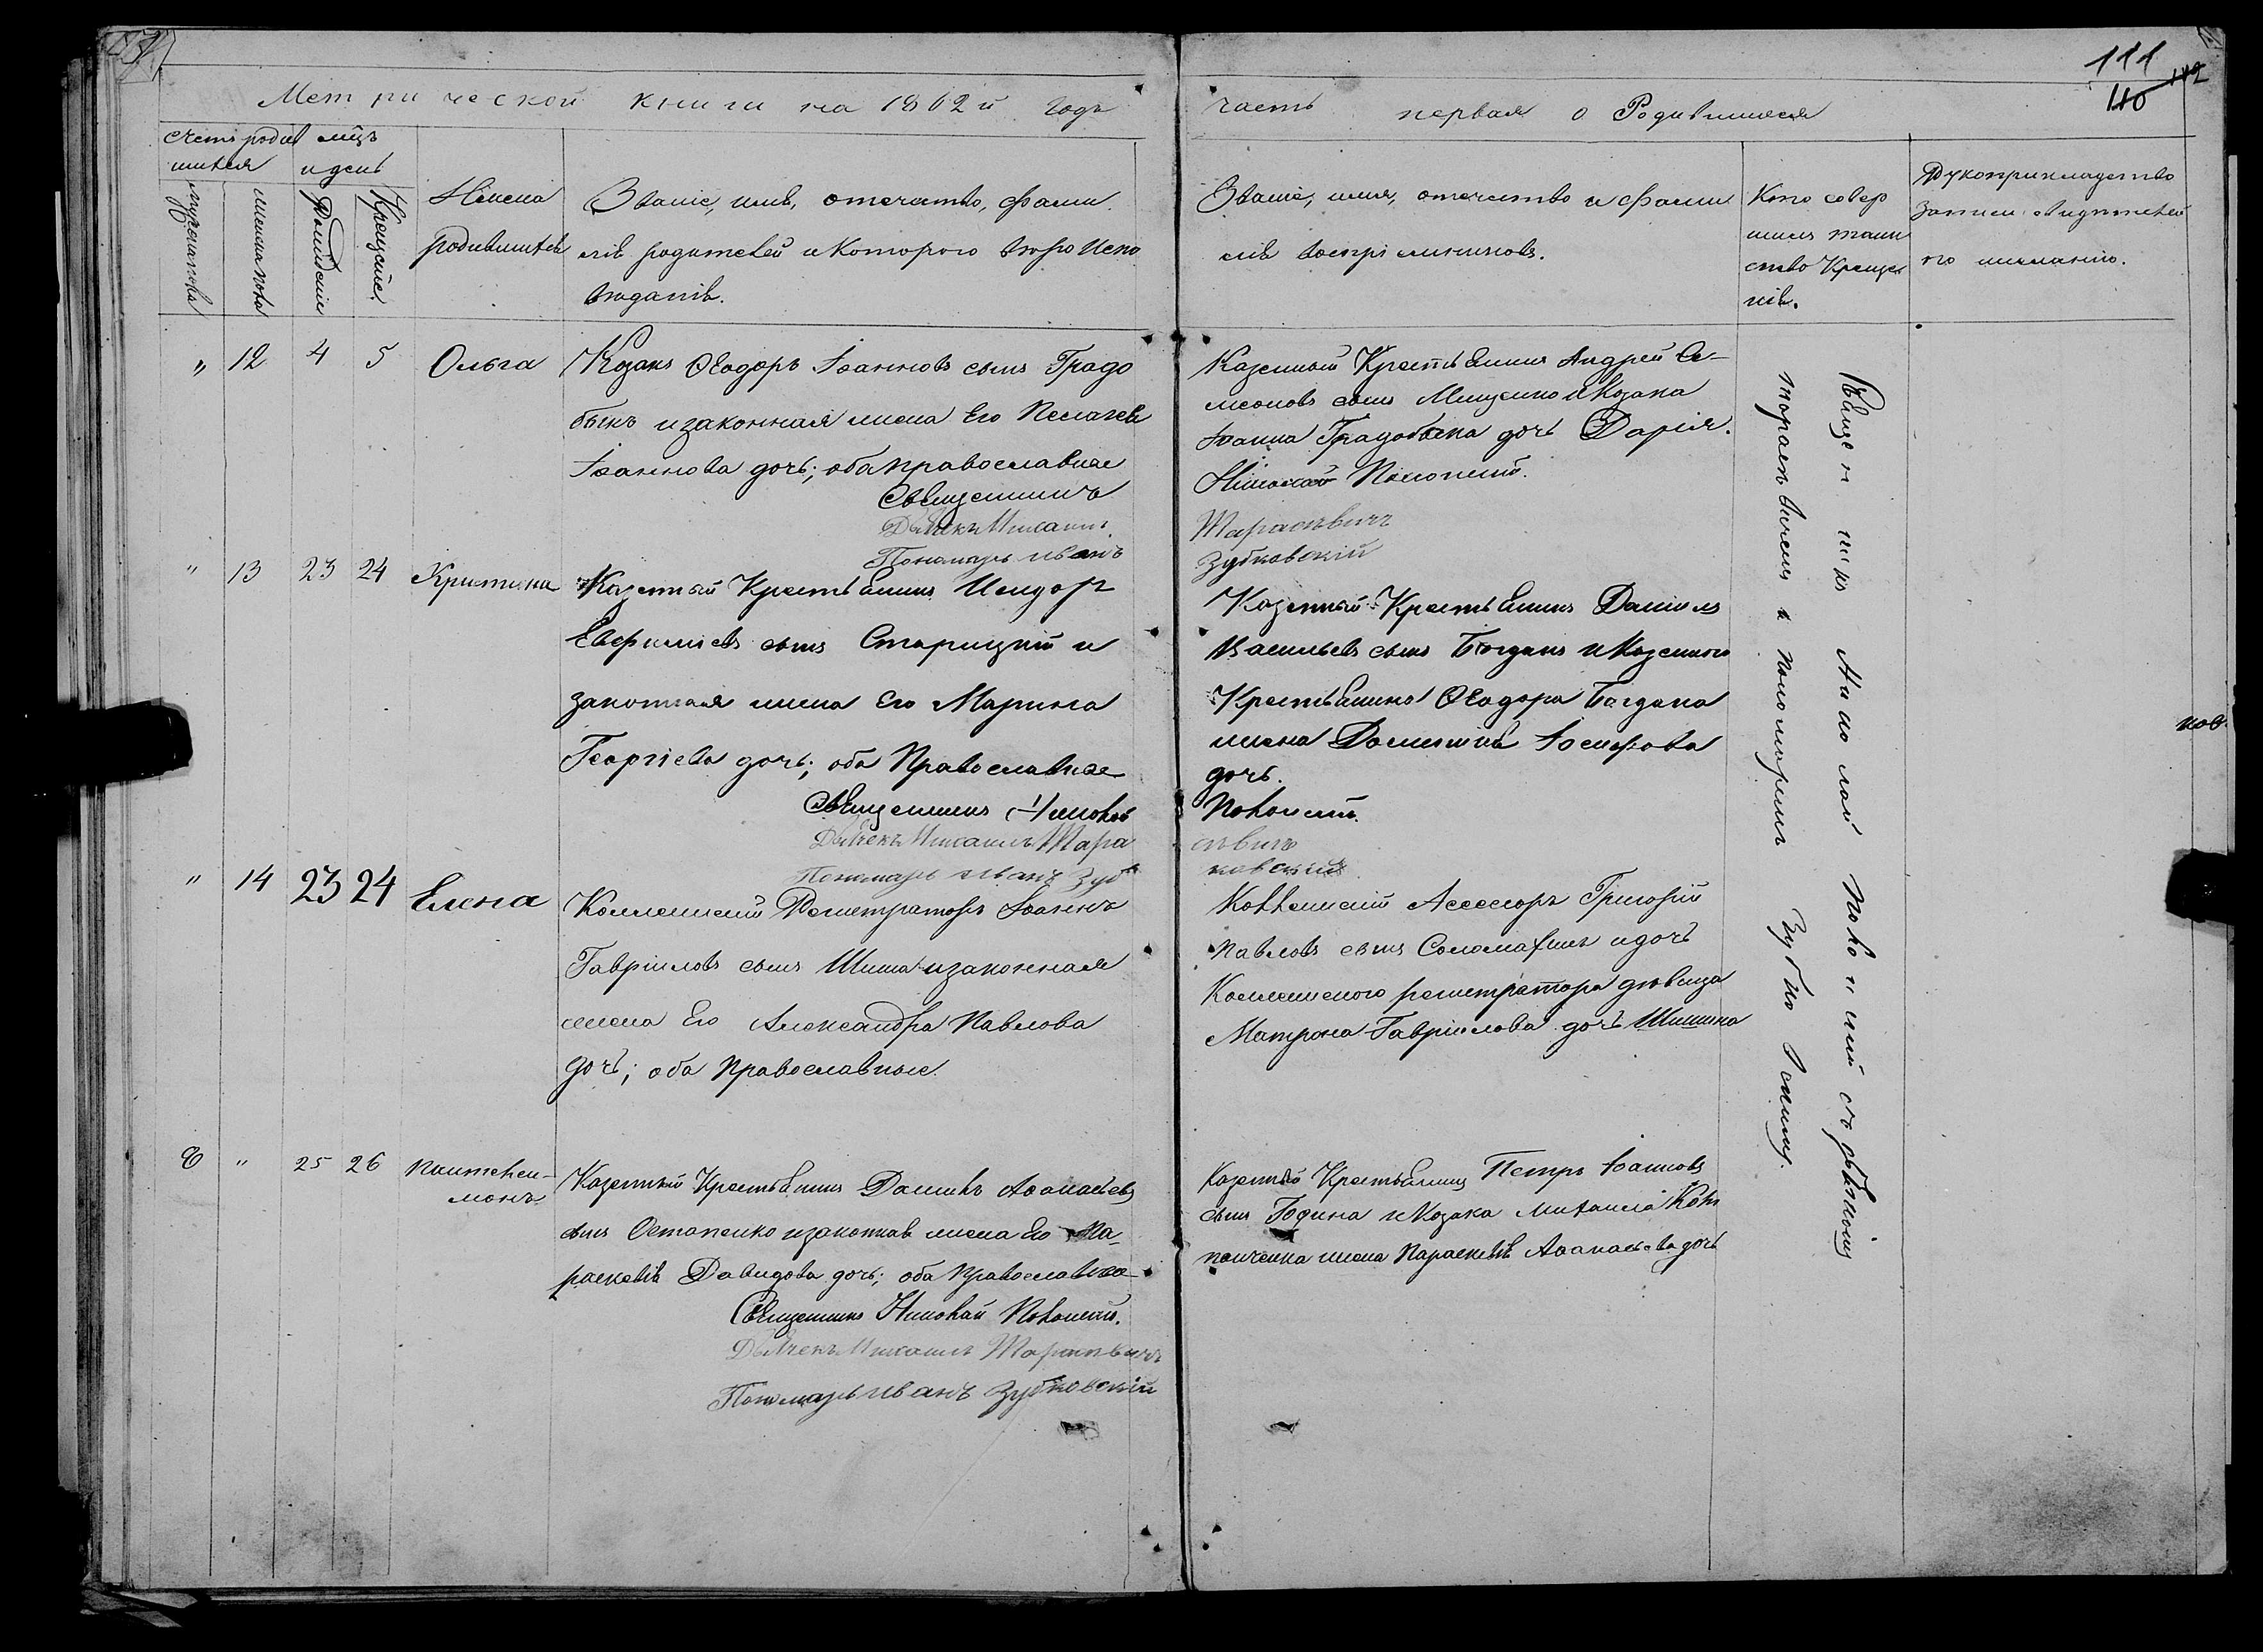 111
110
112
Метрической книги на 1862й годъ
часть первая о Родившихся
Счетъ родив
шихся
мужеска пола
женска пола
мѣцъ
и день
Рожденіе
Крещеніе.
Имена
родившихся
Званіе, имя, отечество, фами
лія родителей и которого вѣро испо
вѣданія.
Званіе, имя, отечество и фами
лія воспріемниковъ.
Кто совер
шилъ таин
ство Креще
нія.
Рукоприкладство
записи свидѣтелей
по желанію.
„ 12 4 5 Ольга
Козакъ Ѳеодоръ Іоанновъ сынъ Градо
быкъ и законная жена Его Пелагея
Іоаннова дочь; оба православные
Священникъ
Дьячекъ Михаилъ
Пономарь Иванъ
Казенный Крестьянинъ Андрей Си-
меоновъ сынъ Мищенко и Козака
Іоанна Градобыка дочь Дарія.
Николай Полонскій.
Тарасѣвичъ
Зубковскій
„ 13 23 24 Христина
Казенный Крестьянинъ Исидоръ
Евфиміевъ сынъ Старицкій и
законная жена Его Марина
Георгіева дочь; оба Православные
Священникъ Николай
Дьячекъ Михаилъ Тара
Пономарь Иванъ Зуб
Казенный Крестьянинъ Даніилъ
Васильевъ сынъ Богданъ и Казенного
Крестьянина Ѳеодора Богдана
жена Домникія Іосифова
дочь.
Полонскій.
сѣвичъ
ковскій
„ 14 23 24 Елена
Коллежскій Регистраторъ Іоаннъ
Гавріиловъ сынъ Шиша и законная
жена Его Александра Павлова
дочь; оба Православные.
Коллежскій Асессоръ Григорій
Павловъ сынъ и дочь
Коллежского регистратора дѣвица
Матрона Гавріилова дочь Шишина
8 „ 25 26 Пантелеи-
монъ
Казенный Крестьянинъ Даніилъ Аѳанасіевъ
сынъ Остапенко и законная жена Его Па-
раскевія Давидова дочь; оба Православные
Священникъ Николай Полонскій.
Дьячекъ Михаилъ Тарасѣвичъ
Пономарь Иванъ Зубковскій
Казенный Крестьянинъ Петръ Іоанновъ
сынъ Година и Козака Михаила
жена Параскевія Аѳанасіева дочь
Священникъ Николай Полонскій съ дьячкомъ
Тарасѣвичемъ и пономаремъ Зубковскимъ.
ков